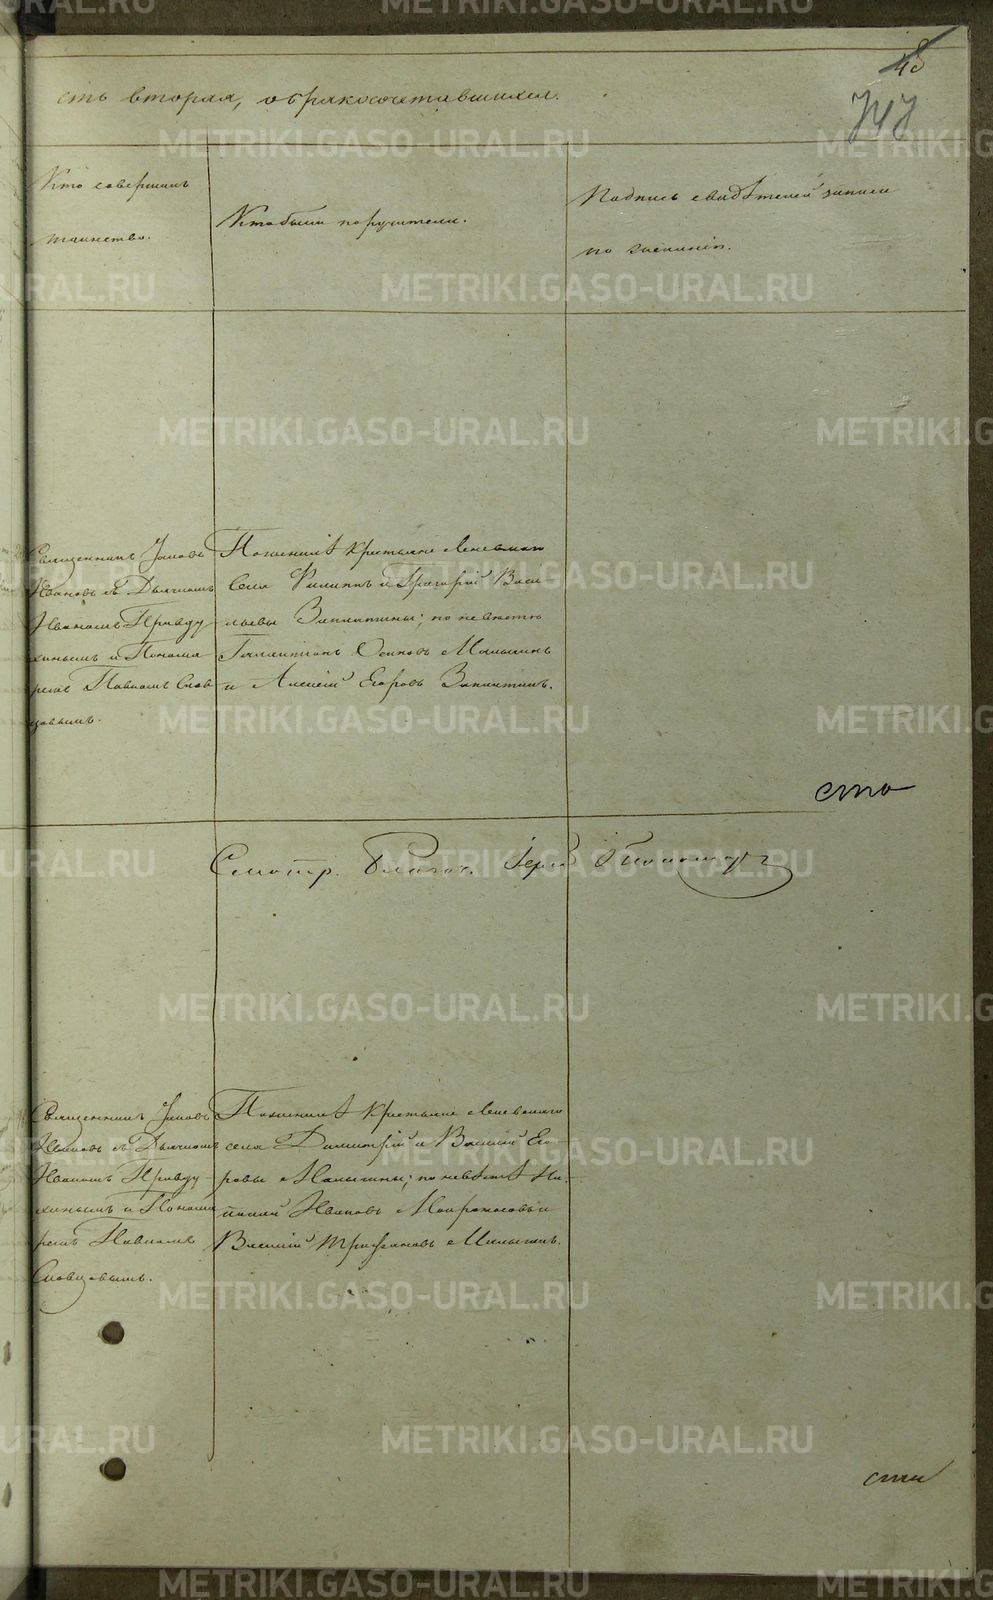 48
747
сть вторая, о бракосочетавшихся.
Кто совершалъ
таинство.
Кто были поручители.
Подпись свидѣтелей записи
по желанію.
Священникъ Іаковъ
Ивановъ съ Дьячкомъ
Иваномъ Правду
хинымъ и Понома
ремъ Павломъ Слов
цовымъ.
По женихѣ крестьяне
села Филиппъ и Григорій Васи
льевы Заплатины; по невѣстѣ
Галактіонъ Осиповъ Малыгинъ
и Алексѣй Егоровъ Заплатинъ.
сто
Смотр. Благоч. Іерей
Священникъ Іаковъ
Ивановъ съ Дьячкомъ
Иваномъ Правду
хинымъ и Понома
ремъ Павломъ
Словцовымъ.
По женихѣ крестьяне
села Димитрій и Василій Его
ровы Малыгины; по невѣстѣ Ни
колай Ивановъ и
Василій Трифановъ Малыгинъ.
METRIKI.GASO-URAL.RU